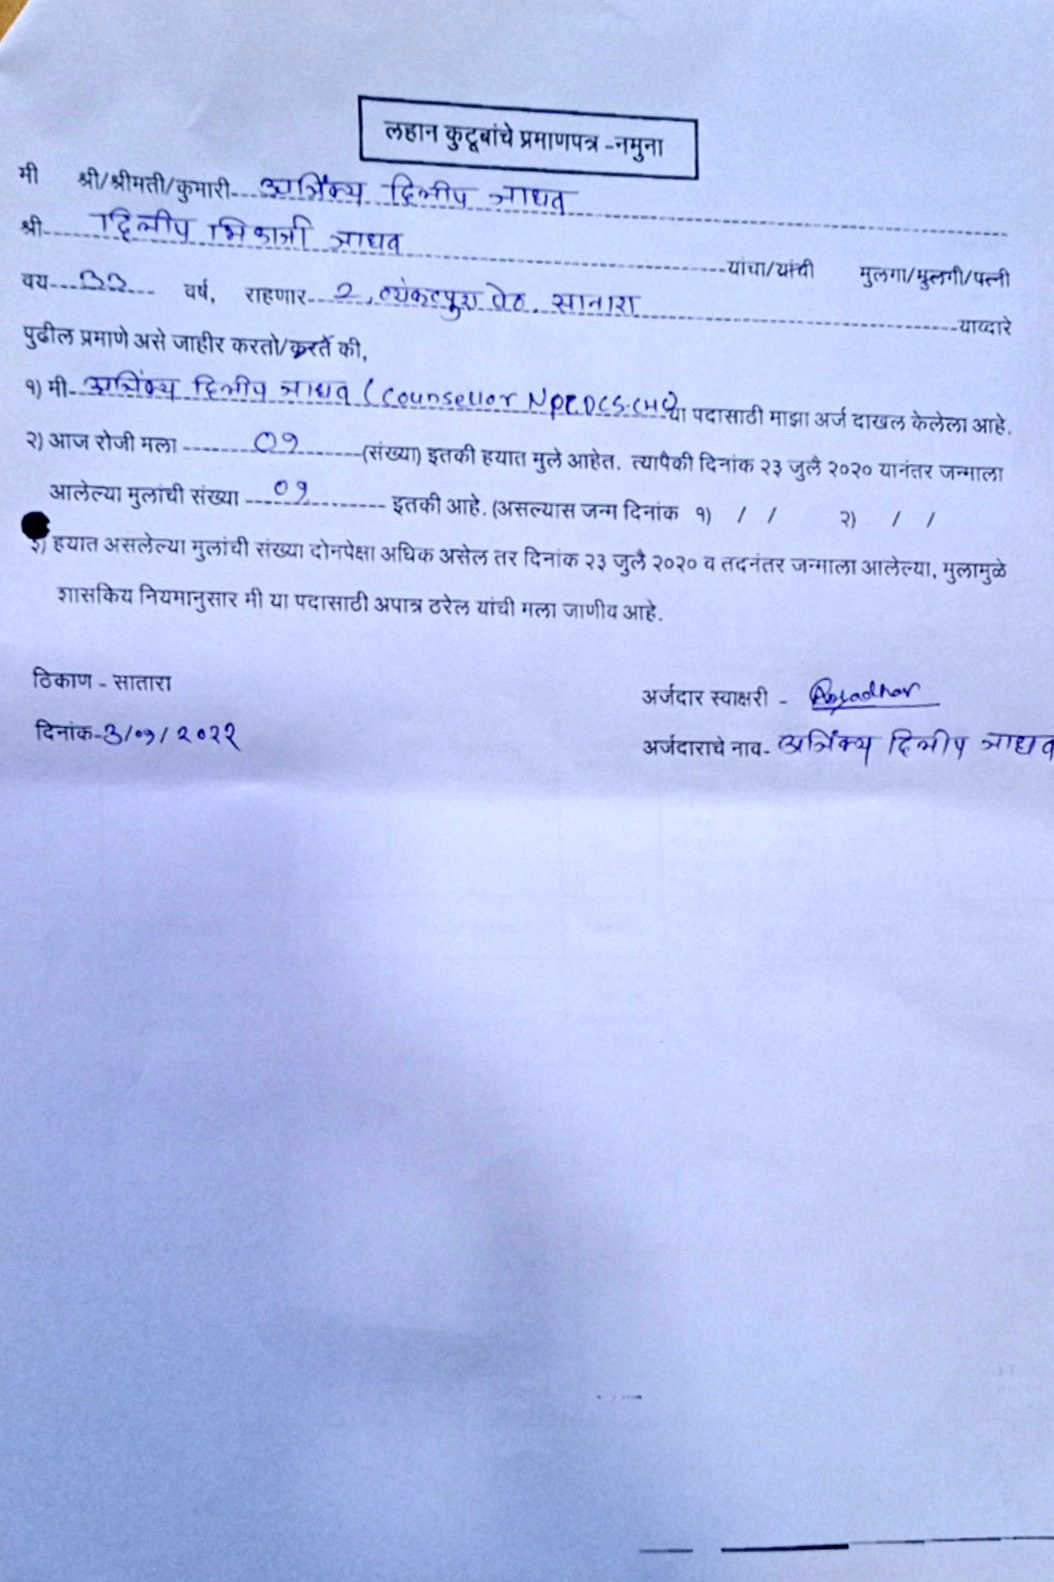 लहान कुटूबांचे प्रमाणपत्र -नमुना
मी श्री/श्रीमती/कुमारी- अजिंक्य दिलीप जाधव
श्री- दिलीप भिकाजी जाधव यांचा/यांची मुलगा/मुलगी/पत्नी
वय- ३३ वर्ष, राहणार- २, व्यंकटपुरा पेठ, सातारा याव्दारे
पुढील प्रमाणे असे जाहीर करतो/करते की,
१) मी- अजिंक्य दिलीप जाधव (Counsellor या पदासाठी माझा अर्ज दाखल केलेला आहे.
२) आज रोजी मला ०१ (संख्या) इतकी हयात मुले आहेत. त्यापैकी दिनांक २३ जुलै २०२० यानंतर जन्माला
आलेल्या मुलांची संख्या ०१ इतकी आहे. (असल्यास जन्म दिनांक १) / / २) / /
३) हयात असलेल्या मुलांची संख्या दोनपेक्षा अधिक असेल तर दिनांक २३ जुलै २०२० व तदनंतर जन्माला आलेल्या, मुलामुळे
शासकिय नियमानुसार मी या पदासाठी अपात्र ठरेल यांची मला जाणीव आहे.
ठिकाण - सातारा
अर्जदार स्वाक्षरी -
दिनांक-3/०१/२०२२
अर्जदाराचे नाव- अजिंक्य दिलीप जाधव